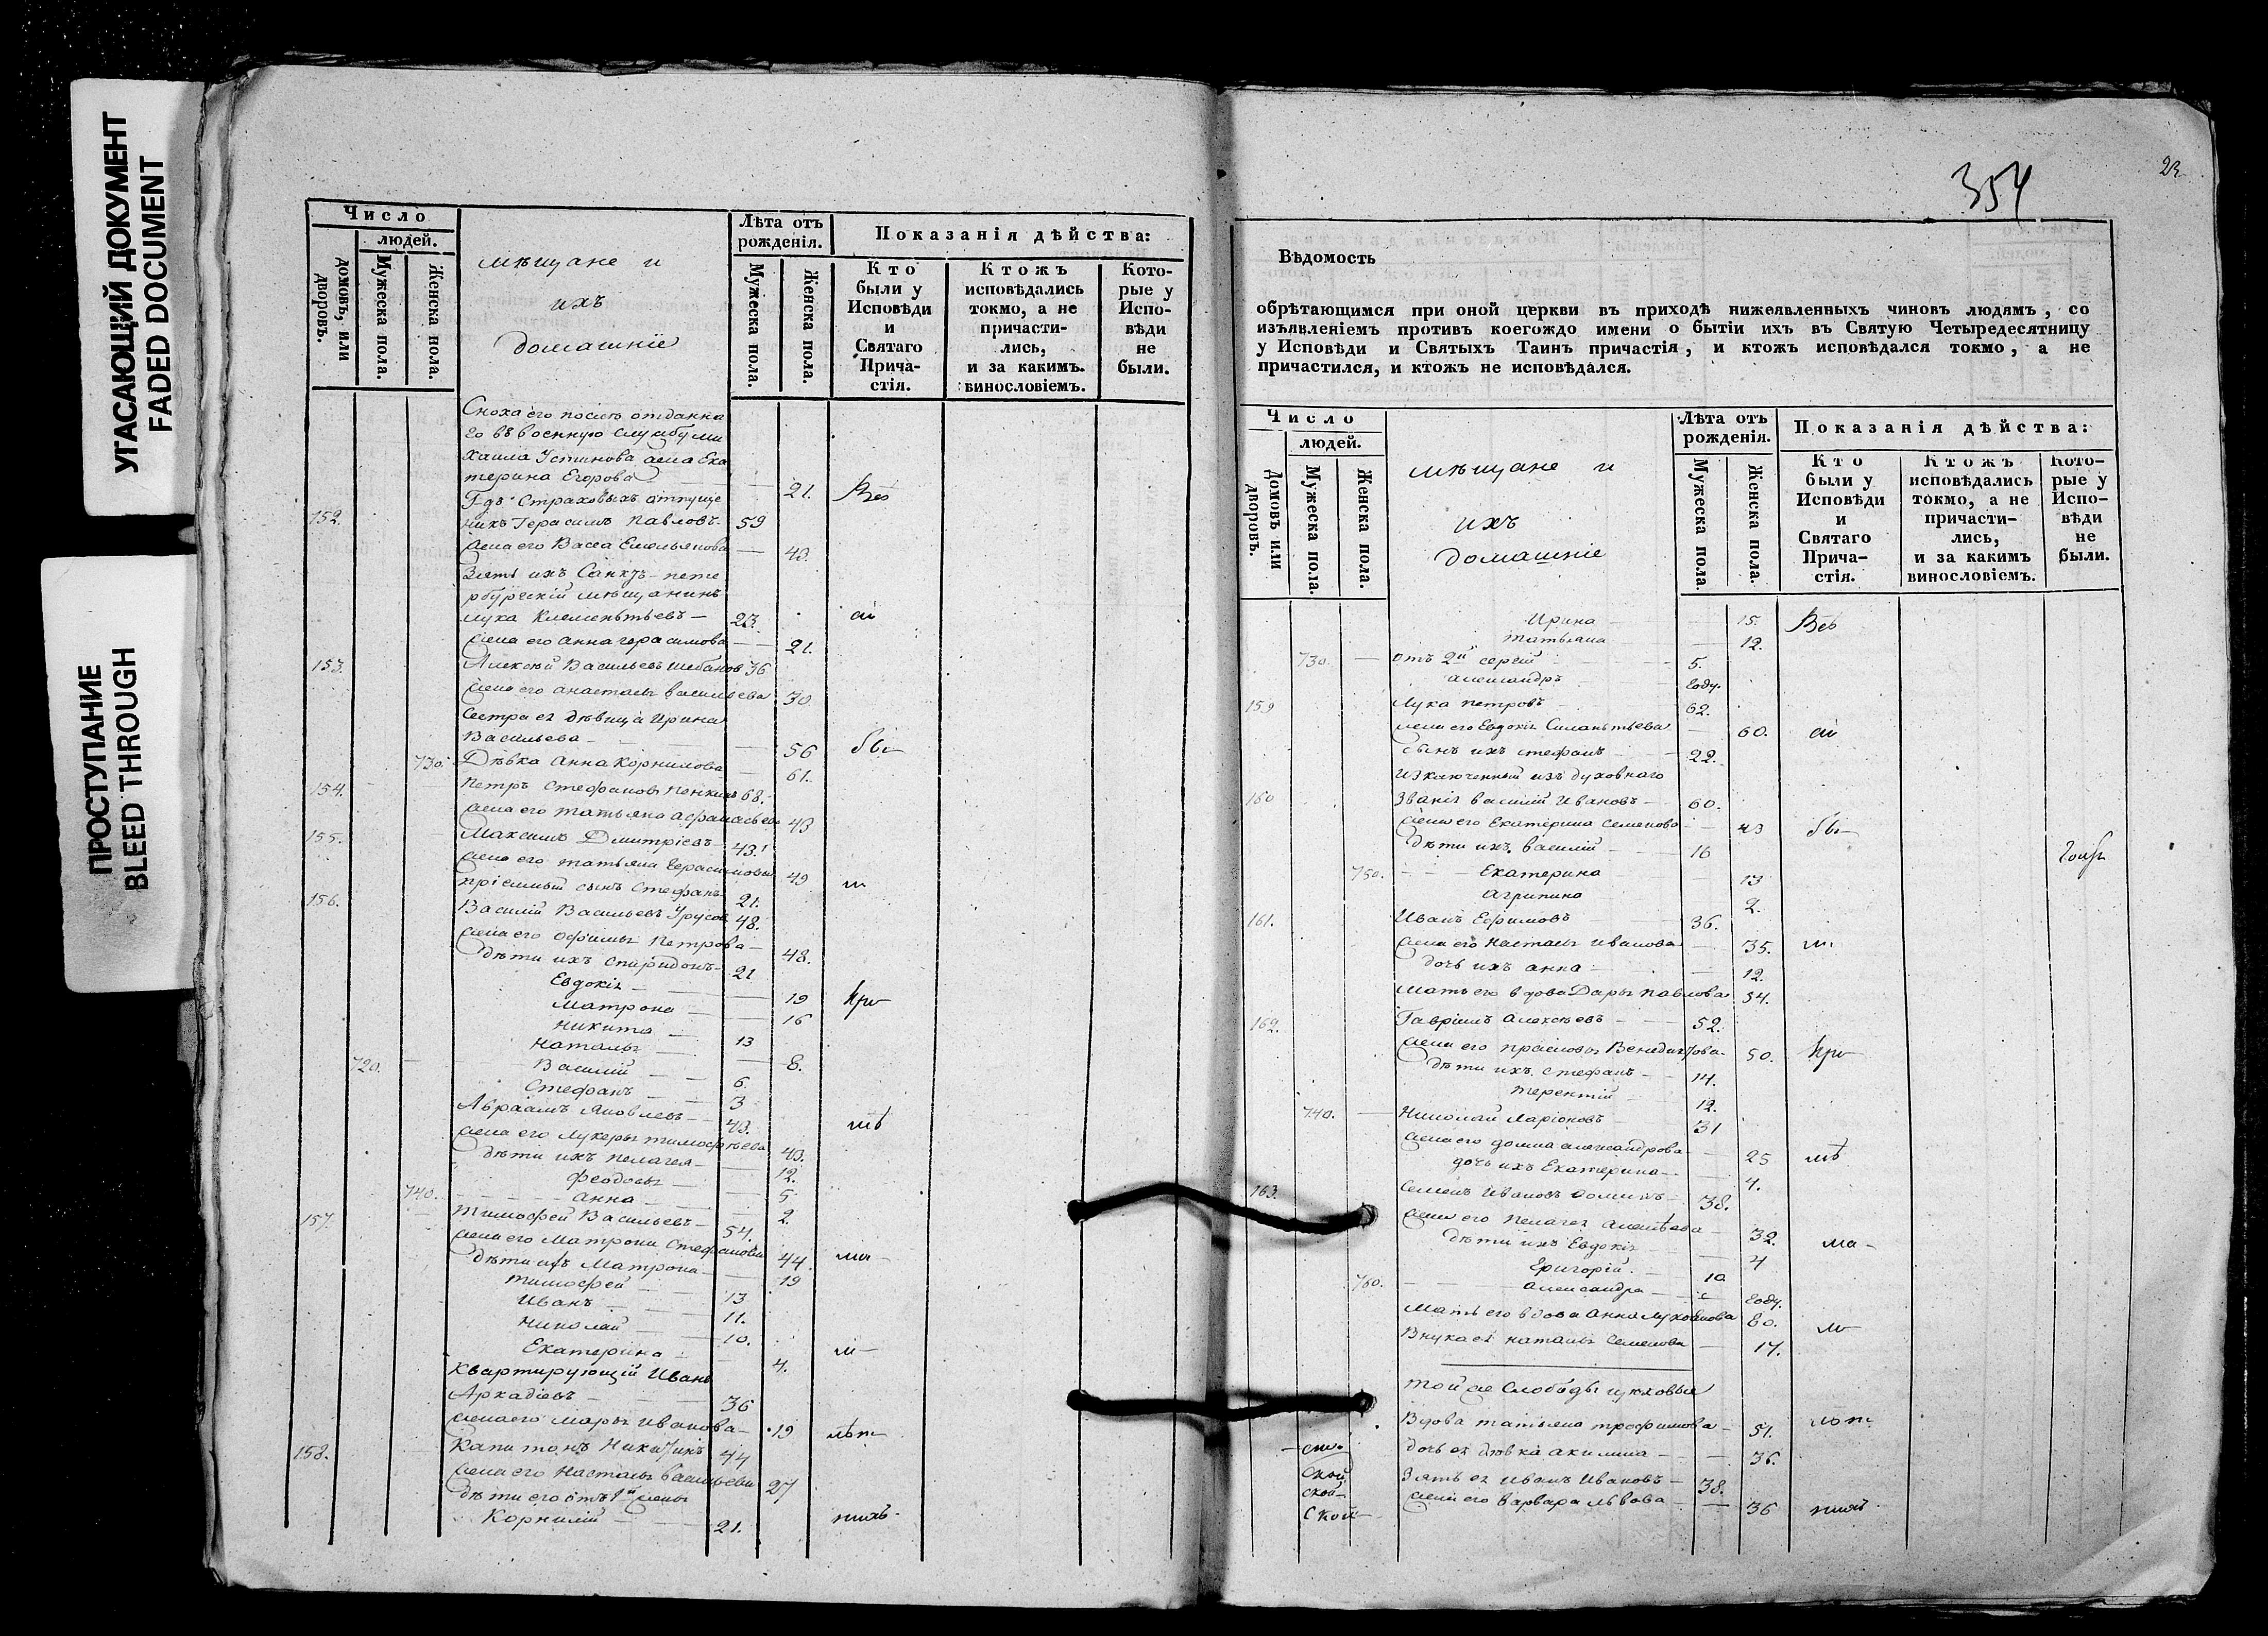 УГАСАЮЩИЙ ДОКУМЕНТ
FADED DOCUMENT
ПРОСТУПАНИЕ
BLEED THROUGH
Число
людей.
домовъ, или дворовъ.
Мужеска пола.
Женска пола.
мѣщане и
ихъ
домашніе
Лѣта отъ рожденія.
Мужеска пола.
Женска пола.
Показанія дѣйства:
Кто были у Исповѣди и Святаго Прича-стія.
Ктожъ исповѣдались токмо, а не причасти-лись, и за какимъ винословіемъ.
Кото-рые у Испо-вѣди не были.
Сноха его послѣ отданна
го въ военную службу ми
хаила Устинова жена Ека
терина Егорова — 21. Всѣ
Г-дъ Страховыхъ отпуще
152. никъ Герасимъ Павловъ 59
жена его Васса Емельянова — 43.
Зять ихъ Санктъ-пете
рбургскій мѣщанинъ
лука Клементьевъ — 23.
жена его Анна герасимова — 21.
153. Алексѣй Васильевъ Шебановъ 36
жена его анастасья васильева 30
Сестра ея дѣвица Ирина
Васильева — 56
730. Дѣвка Анна Корнилова — 61.
154. Петръ Стефановъ 68.
жена его татьяна афанасьева 43
155. Максимъ Дмитріевъ 43.
жена его татьяна герасимова 49
пріемный сынъ Стефанъ 21.
156. Василій Васильевъ Урусовъ 48.
жена его офимья Петрова — 48.
дѣти ихъ спиридонъ 21
Евдокія — 19
Матрона — 16
Никита — 13
Наталья — 8.
720. Василій — 6.
Стефанъ — 3
Авраамъ Яковлевъ — 43.
жена его лукерья тимофѣева 40.
дѣти ихъ пелагея — 12.
феодосья — 5
740. анна — 2.
157. Тимофей Васильевъ — 54.
жена его Матрона Стефанова 44
дѣти ихъ Матрона — 19
тимофей — 13
Иванъ — 11.
Николай — 10.
Екатерина — 4.
квартирующій Иванъ
Аркадіевъ 36
жена его марья Иванова — 19
158. Капитонъ Никитинъ 44
жена его Настасья васильева 27
дѣти его отъ 1й жены
Корнилій 21.
354
Вѣдомость
обрѣтающимся при оной церкви въ приходѣ нижеявленныхъ чиновъ людямъ, со
изъявленіемъ противъ коегождо имени о бытіи ихъ въ Святую Четыредесятницу
у Исповѣди и Святыхъ Таинъ причастія, и ктожъ исповѣдался токмо, а не
причастился, и ктожъ не исповѣдался.
Число
людей.
Домовъ или дворовъ.
Мужеска пола.
Женска пола.
мѣщане и
ихъ
домашніе
Лѣта отъ рожденія.
Мужеска пола
Женска пола.
Показанія дѣйства:
Кто были у Исповѣди и Святаго Прича-стія.
Ктожъ исповѣдались токмо, а не причасти-лись, и за какимъ винословіемъ.
Кото-рые у Испо-вѣди не были.
Ирина 15. Всѣ
татьяна 12.
730. отъ 2й сергій 5.
александръ году.
159 Лука Петровъ 62.
жена его Евдокія Силантьева 60.
сынъ ихъ стефанъ 22.
изключенный изъ духовнаго
160 званія василій Ивановъ 60.
жена его Екатерина Семенова 43
дѣти ихъ василій 16
750. Екатерина 13
агрипина 2.
161. Иванъ Ефимовъ 36.
жена его Настасья иванова 35.
дочь ихъ анна 12.
мать его вдова Дарья Павлова 54.
162. Гавріилъ Алексѣевъ 52.
жена его прасковья Венедиктова 50.
дѣти ихъ стефанъ 14.
терентій 12.
740. Николай ларіоновъ 31
жена его домна александрова 25
дочь ихъ Екатерина 4.
163. Семенъ Ивановъ 38.
жена его пелагея 32.
дѣти ихъ Евдокія 4
Григорій 10
760. Александра году.
Мать его вдова Анна 80.
Внука ея наталья Семенова 17.
той же Слободы цеховые
Вдова татьяна трофимова 51.
дочь ея дѣвка акилина 36.
Зять ея иванъ Ивановъ 38.
жена его варвара львова 36